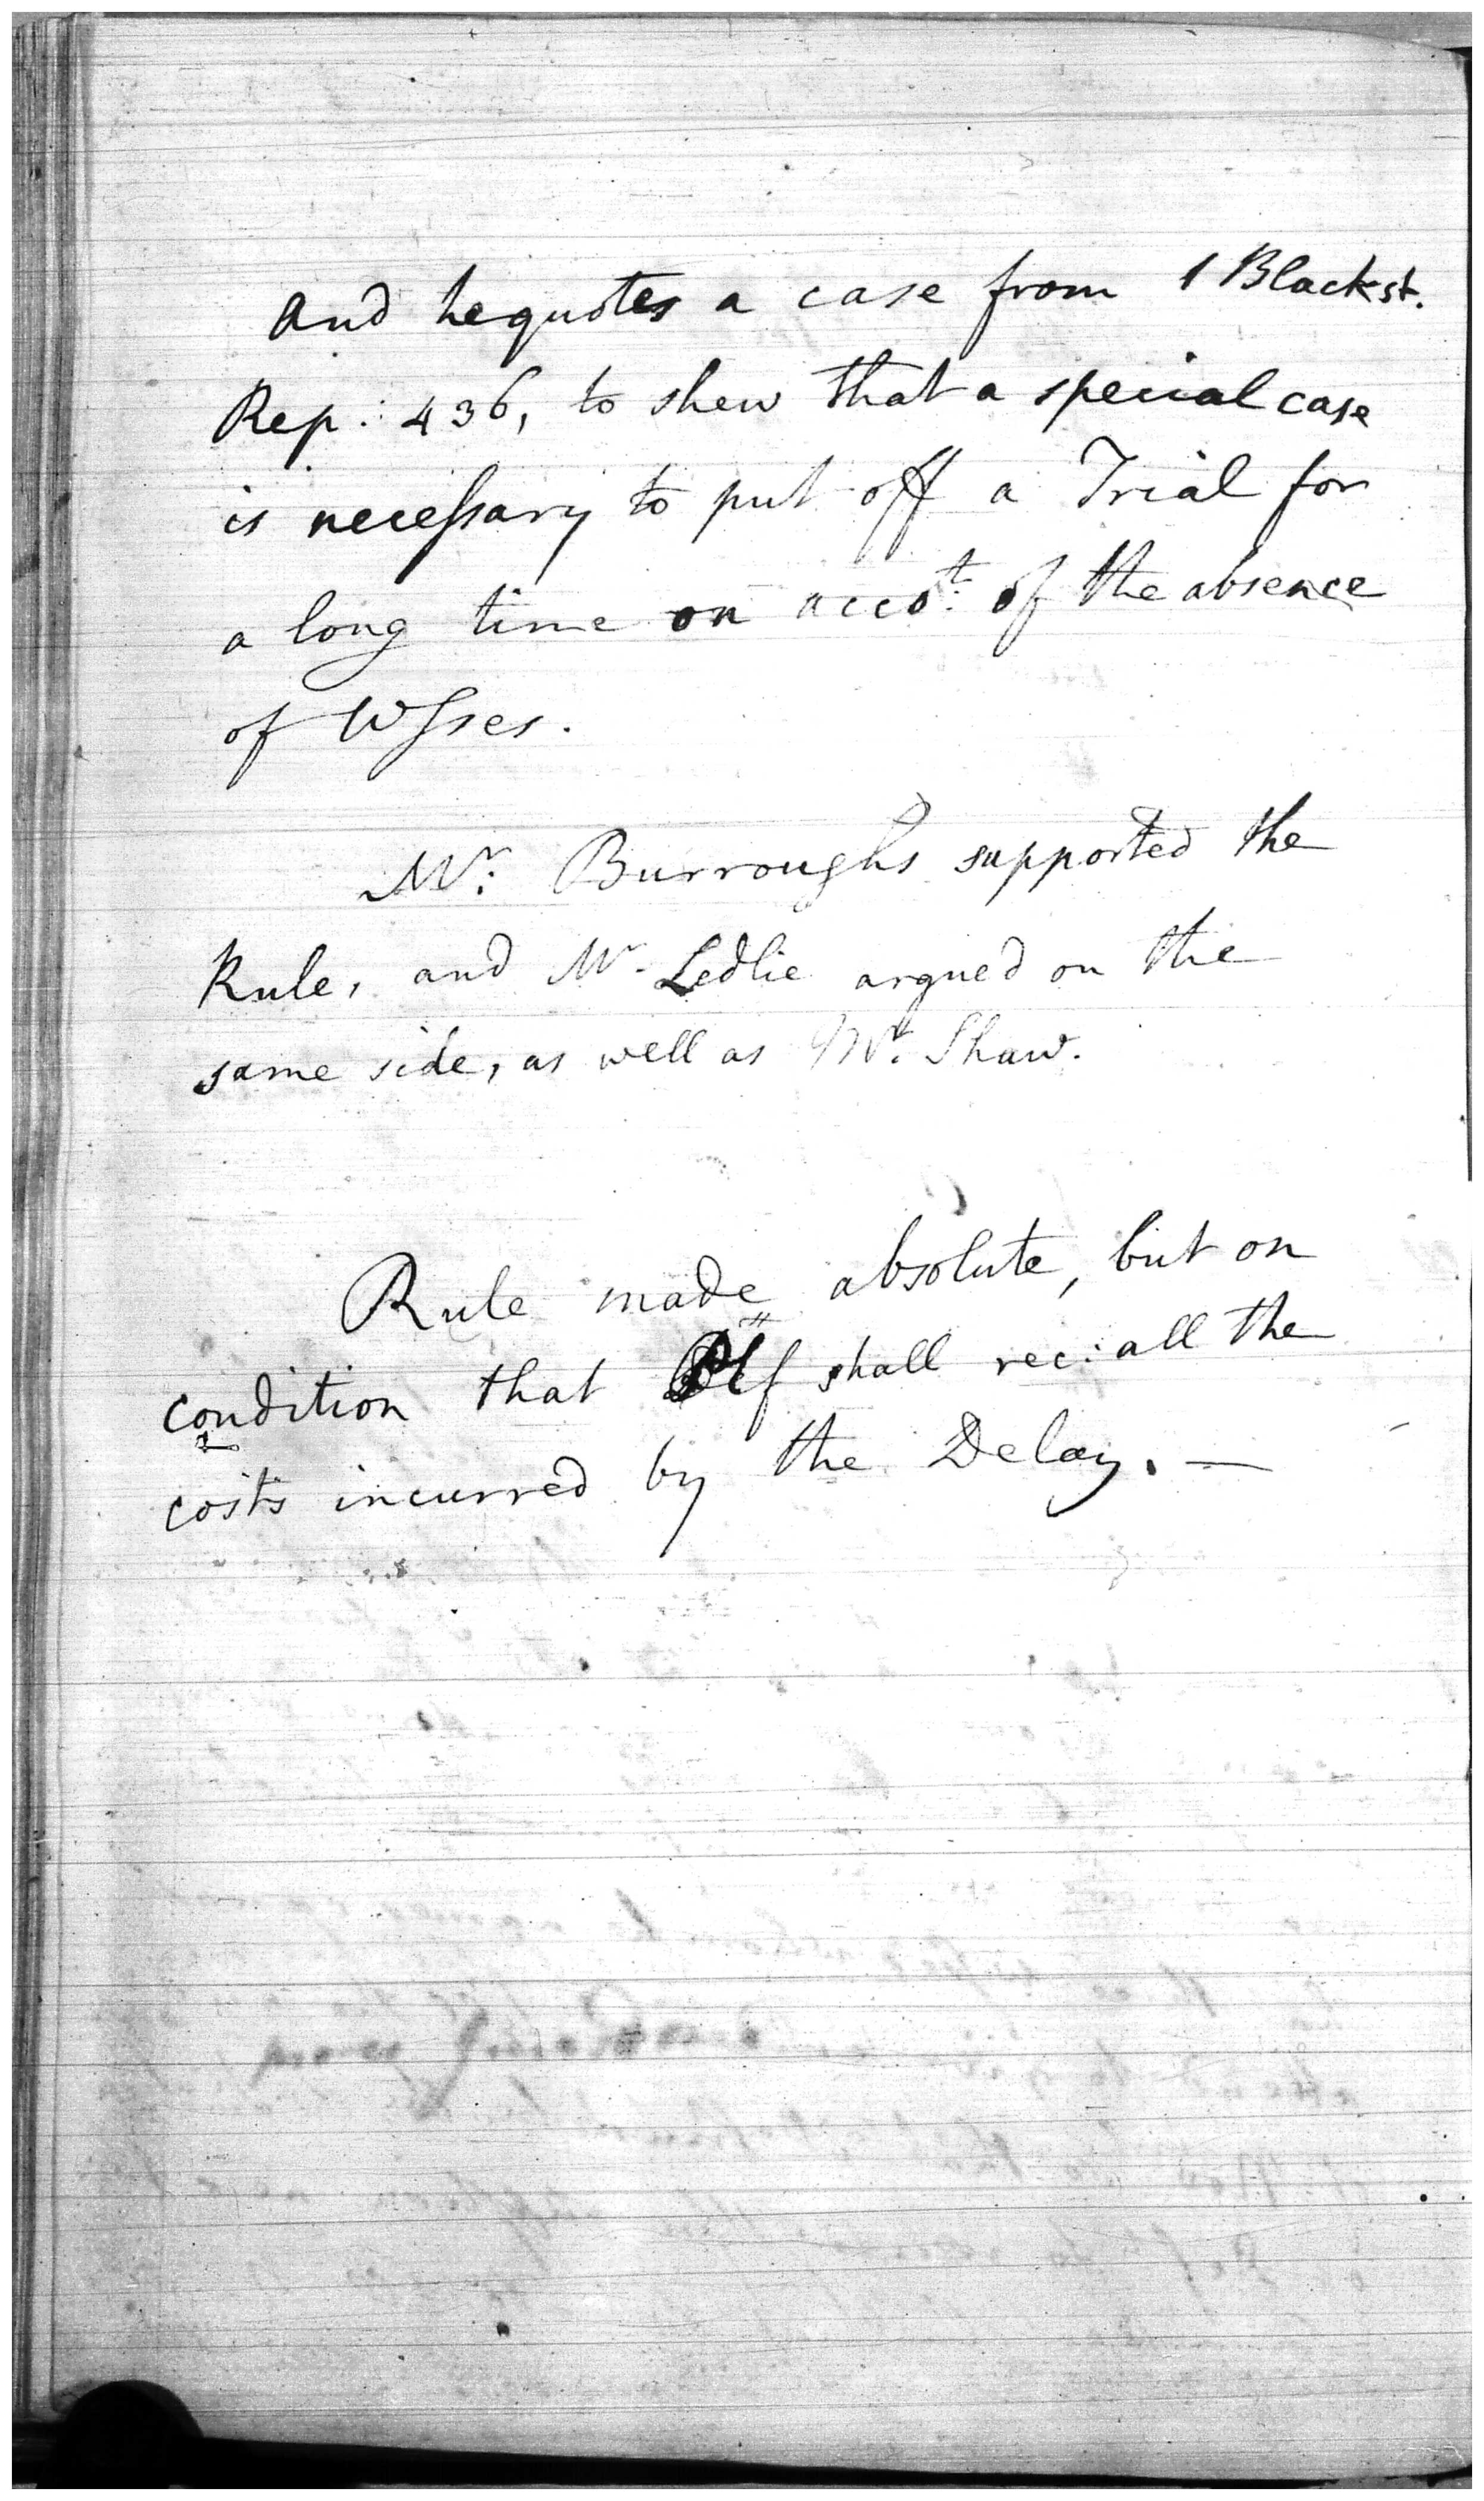 And he quotes a case from 1 Blackst.
Rep: 436, to shew that a special case
is necessary to put off a Trial for
a long time on acco:t of the absence
of Wsses.
Mr: Burroughs supported the
Rule, and Mr. Ledlie argued on the
same side, as well as Mr. Shaw.
Rule made absolute, but on
condition that Plff shall rec: all the
costs incurred by the Delay. —